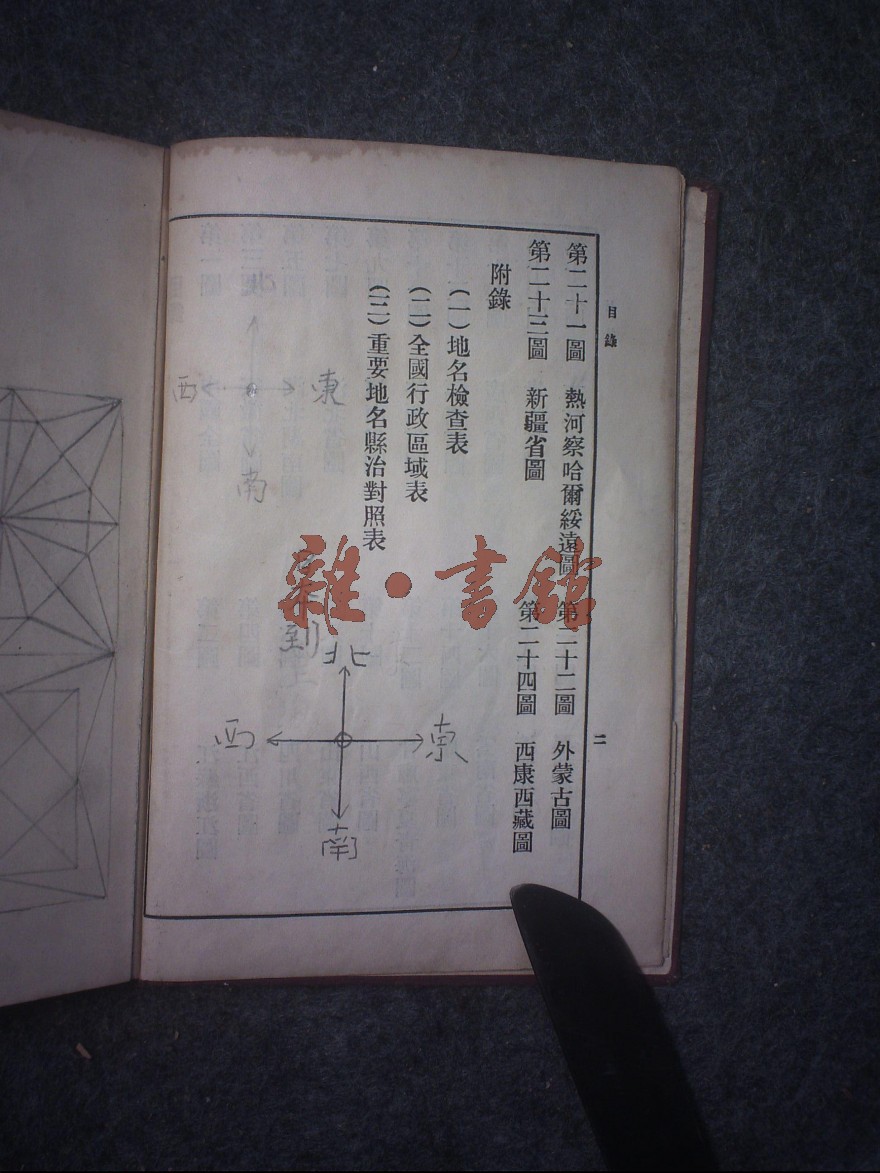 目錄
第二十一圖 熱河察哈爾綏遠圖 第二十二圖 外蒙古圖
第二十三圖 新疆省圖 第二十四圖 西康西藏圖
附錄
(一)地名檢查表
(二)全國行政區域表
(三)重要地名縣治對照表
二
北
西 東
南
到
北
西 東
南
雜·書館